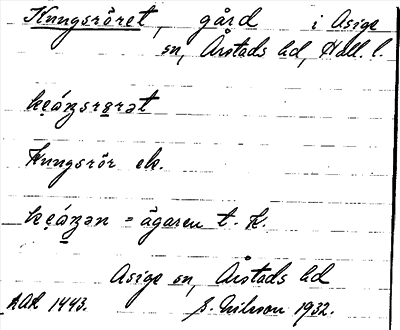 Kungsröret, gård i Asige
sn, Årstads hd, Hall. l.
Kungsrör ek.
= ägaren t. K.
Asige sn, Årstads hd
AAR 1443. S. Nilsson 1932.